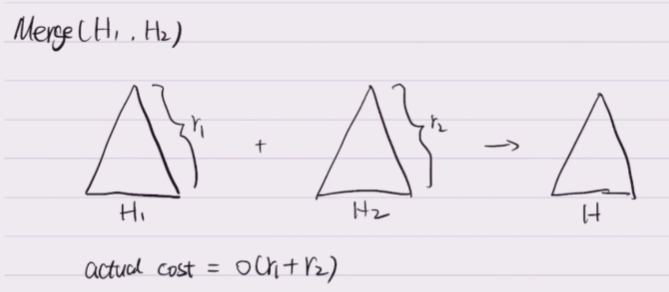 Merge(H₁, H₂)
r₁ + r₂ →
H₁ H₂ H
actual cost = O(r₁+r₂)